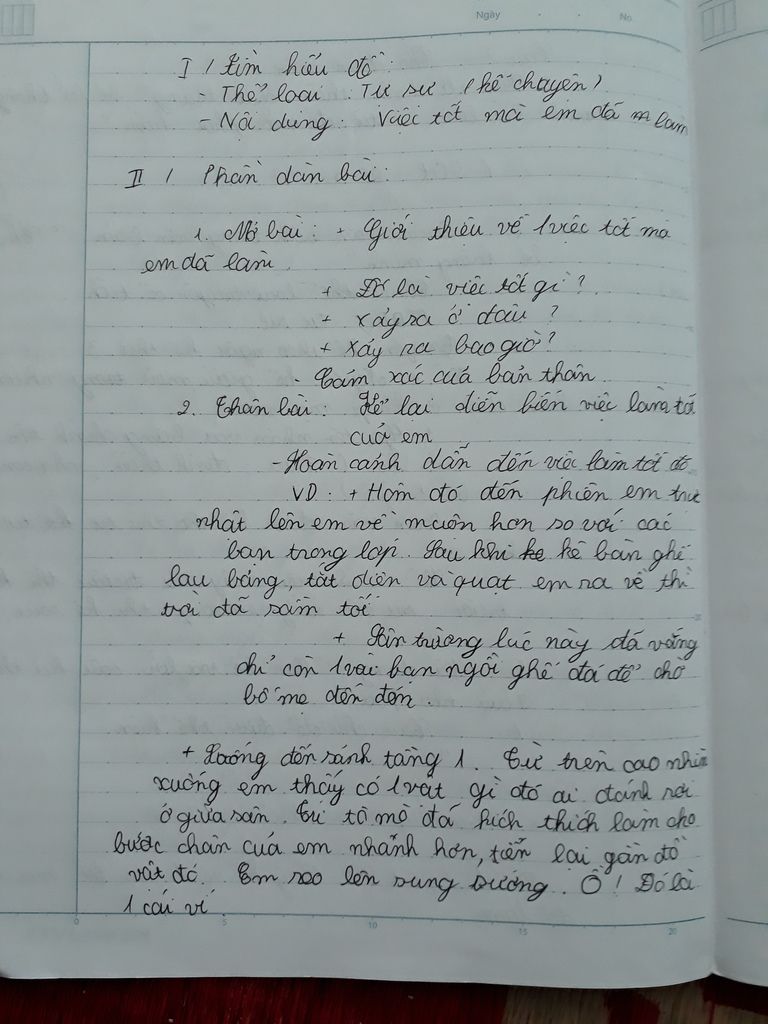 Ngày . . No.
I / Tìm hiểu đề :
- Thể loại : Tự sự (kể chuyện)
- Nội dung : Việc tốt mà em đã làm
II / Phần dàn bài :
1. Mở bài : + Giới thiệu về 1 việc tốt mà
em đã làm
+ Đó là việc tốt gì ?
+ Xảy ra ở đâu ?
+ Xảy ra bao giờ ?
- Cảm xúc của bản thân
2. Thân bài : Kể lại diễn biến việc làm tố
của em
- Hoàn cảnh dẫn đến việc làm tốt đó
VD : + Hôm đó đến phiên em trực
nhật lên em về muộn hơn so với các
bạn trong lớp. Sau khi kê bàn ghế
lau bảng, tắt điện và quạt em ra về thì
trời đã sầm tối
+ Sân trường lúc này đã vắng
chỉ còn 1 vài bạn ngồi ghế đá để chờ
bố mẹ đến đón.
+ Xuống đến sảnh tầng 1. Từ trên cao nhìn
xuống em thấy có 1 vật gì đó ai đánh rơi
ở giữa sân. Sự tò mò đã kích thích làm cho
bước chân của em nhanh hơn, tiến lại gần đồ
vật đó. Em reo lên sung sướng. Ồ ! Đó là
1 cái ví
0 5 10 15 20